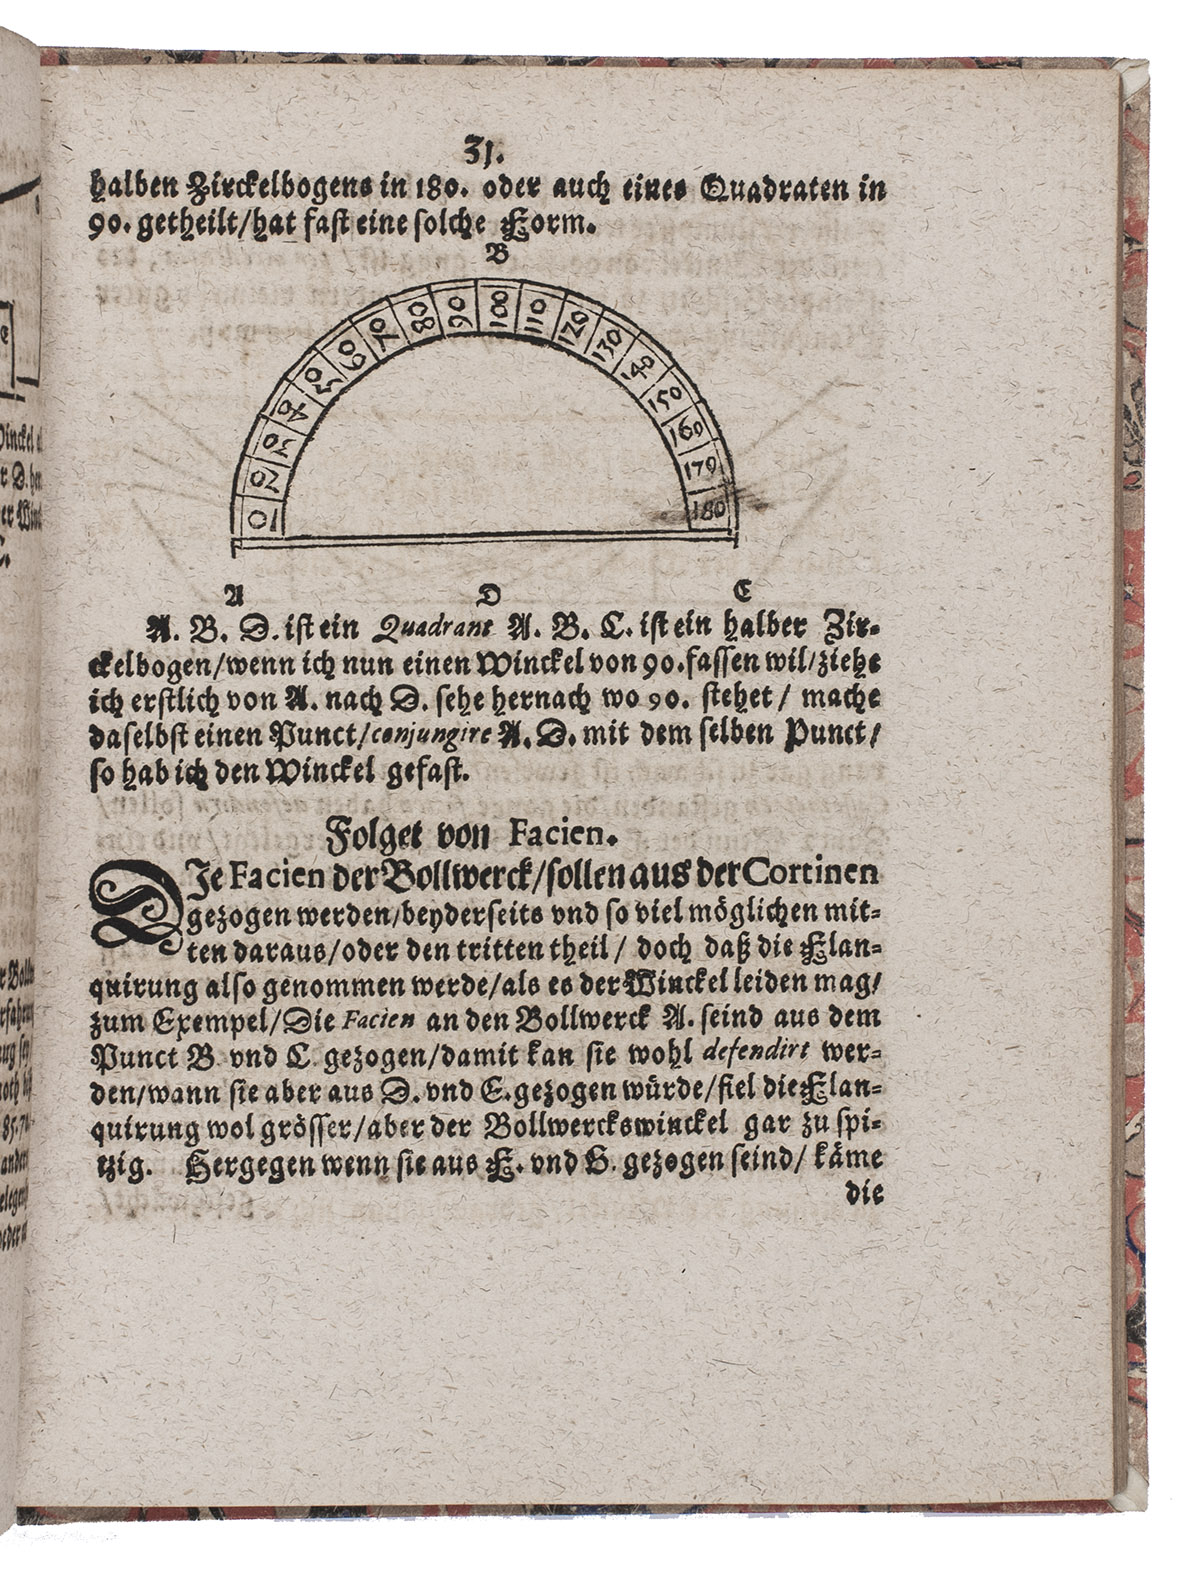 31.
halben Zirckelbogens in 180. oder auch eines Quadraten in
90. getheilt/hat fast eine solche Form.
B
10 20 30 40 50 60 70 80 90 100 110 120 130 140 150 160 170 180
A D C
A. B. D. ist ein Quadrant A. B. C. ist ein halber Zir-
ckelbogen/wenn ich nun einen Winckel von 90. fassen wil/ziehe
ich erstlich von A. nach D. sehe hernach wo 90. stehet/ mache
daselbst einen Punct/conjungire A. D. mit dem selben Punct/
so hab ich den Winckel gefast.
Folget von Facien.
DJe Facien der Bollwerck/sollen aus der Cortinen
gezogen werden/beyderseits vnd so viel möglichen mit-
ten daraus/oder den tritten theil/ doch daß die Flan-
quirung also genommen werde/als es der Winckel leiden mag/
zum Exempel/Die Facien an den Bollwerck A. seind aus dem
Punct B. vnd C. gezogen/damit kan sie wohl defendirt wer-
den/wann sie aber aus D. vnd E. gezogen würde/fiel die Flan-
quirung wol grösser/aber der Bollwerckswinckel gar zu spi-
tzig. Hergegen wenn sie aus F. vnd G. gezogen seind/ käme
die